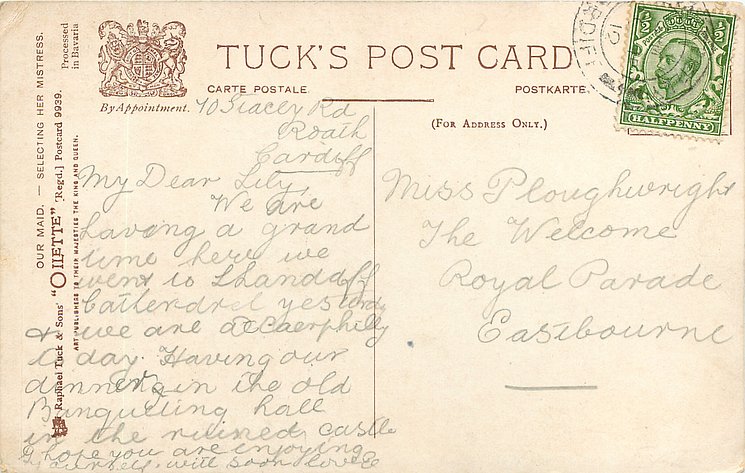 TUCK'S POST CARD
CARTE POSTALE.
POSTKARTE.
By Appointment.
(FOR ADDRESS ONLY.)
OUR MAID. — SELECTING HER MISTRESS.
Processed
in Bavaria
Raphael Tuck & Sons' "OILETTE" [Regd.] Postcard 9939.
ART PUBLISHERS TO THEIR MAJESTIES THE KING AND QUEEN.
½ ½
HALFPENNY
70 Stacey Rd
Roath
Cardiff
My Dear Lily,
We are
having a grand
time here we
went to Llandaff
Catherdrel yesterdy
& we are at Caerphilly
to day. Having our
dinners in the old
Banqueting hall
in the ruined castle
I hope you are enjoying
yourself. will soon love E
Miss Ploughwright
The Welcome
Royal Parade
Eastbourne